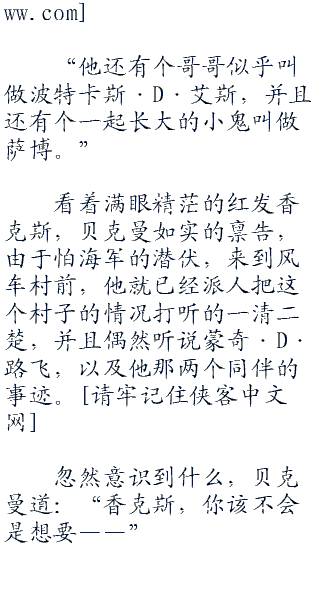 ww.com]
“他还有个哥哥似乎叫
做波特卡斯·D·艾斯，并且
还有个一起长大的小鬼叫做
萨博。”
看着满眼精茫的红发香
克斯，贝克曼如实的禀告，
由于怕海军的潜伏，来到风
车村前，他就已经派人把这
个村子的情况打听的一清二
楚，并且偶然听说蒙奇·D·
路飞，以及他那两个同伴的
事迹。[请牢记住侠客中文
网]
忽然意识到什么，贝克
曼道：“香克斯，你该不会
是想要——”